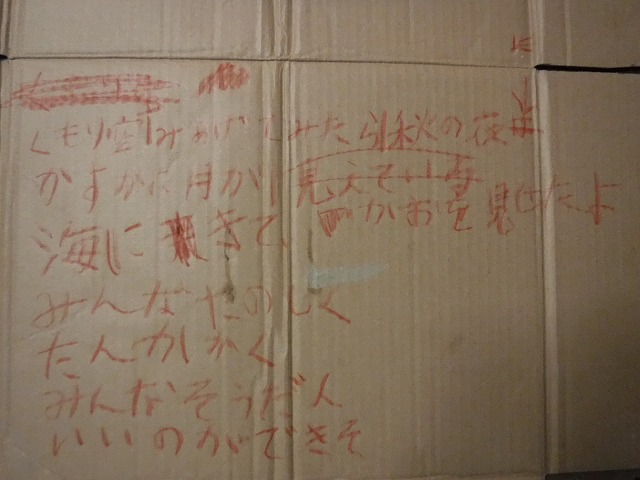 くもり空みあげてみた秋の夜
かすかに月がかおを見せたよ
海にきて
みんなたのしく
たんかかく
みんなそうだん
いいのができそ